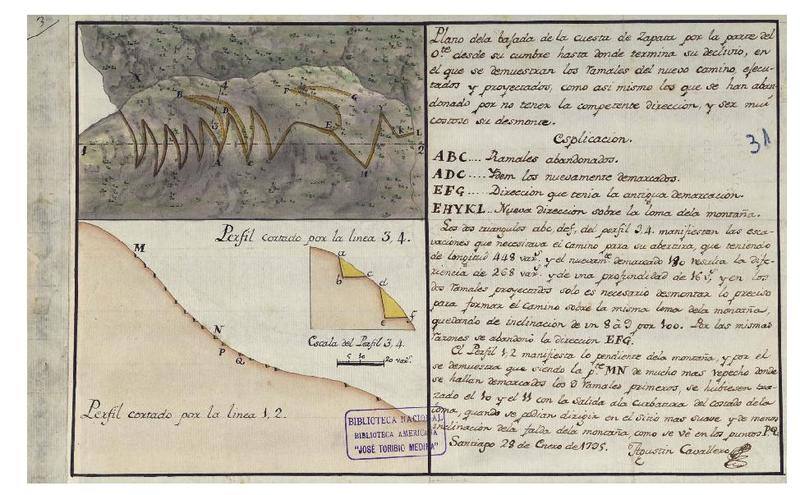 3
A
B
4
F
G
B
3
D
E
Y
K
L
1
2
A
H
C
Perfil cortado por la linea 3, 4.
M
a
b
c
d
e
f
N
P
Q
Escala del Perfil 3, 4.
5 10 20 varˢ.
Perfil cortado por la linea 1, 2.
BIBLIOTECA NACIONAL
BIBLIOTECA AMERICANA
"JOSÉ TORIBIO MEDINA"
Plano dela bajada de la cuesta de Zapata por la parte del
Oᵗᵉ desde su cumbre hasta donde termina su declivio, en
el que se demuestran los Ramales del nuevo camino, ejecu-
tados y proyectados, como asi mismo los que se han aban-
donado por no tener la competente dirección, y ser mui
costoso su desmonte.
Esplicacion.
31
ABC.... Ramales abandonados.
ADC.... Ydem los nuevamente demarcados.
EFG.... Dirección que tenia la antigua demarcacion.
EHYKL... Nueva dirección sobre la loma dela montaña.
Los dos triangulos abc, def, del perfil 3 4. manifiestan las esca-
vaciones que necesitava el camino para su abertura, que teniendo
de longitud 448 varˢ. y el nuevamᵗᵉ demarcado 180 resulta la dife-
rencia de 268 varˢ. y de una profundidad de 16 vˢ, y en los
dos Ramales proyectados solo es necesario desmontar lo preciso
para formar el camino sobre la misma loma dela montaña,
quedando de inclinacion de un 8 à 9 por 100. Por las mismas
razones se abandonó la dirección EFG.
El Perfil 1, 2 manifiesta lo pendiente dela montaña, y por el
se demuestra que siendo la pᵗᵉ MN de mucho mas repecho donde
se hallan demarcados los 9 Ramales primeros, se hubiesen tra-
zado el 10 y el 11 con la salida ala curbatura del costado dela
loma, quando se podian dirigir en el sitio mas suave y de menos
inclinacion dela falda dela montaña, como se vé en los puntos P.Q.
Santiago 28 de Enero de 1795. Agustin Cavallero